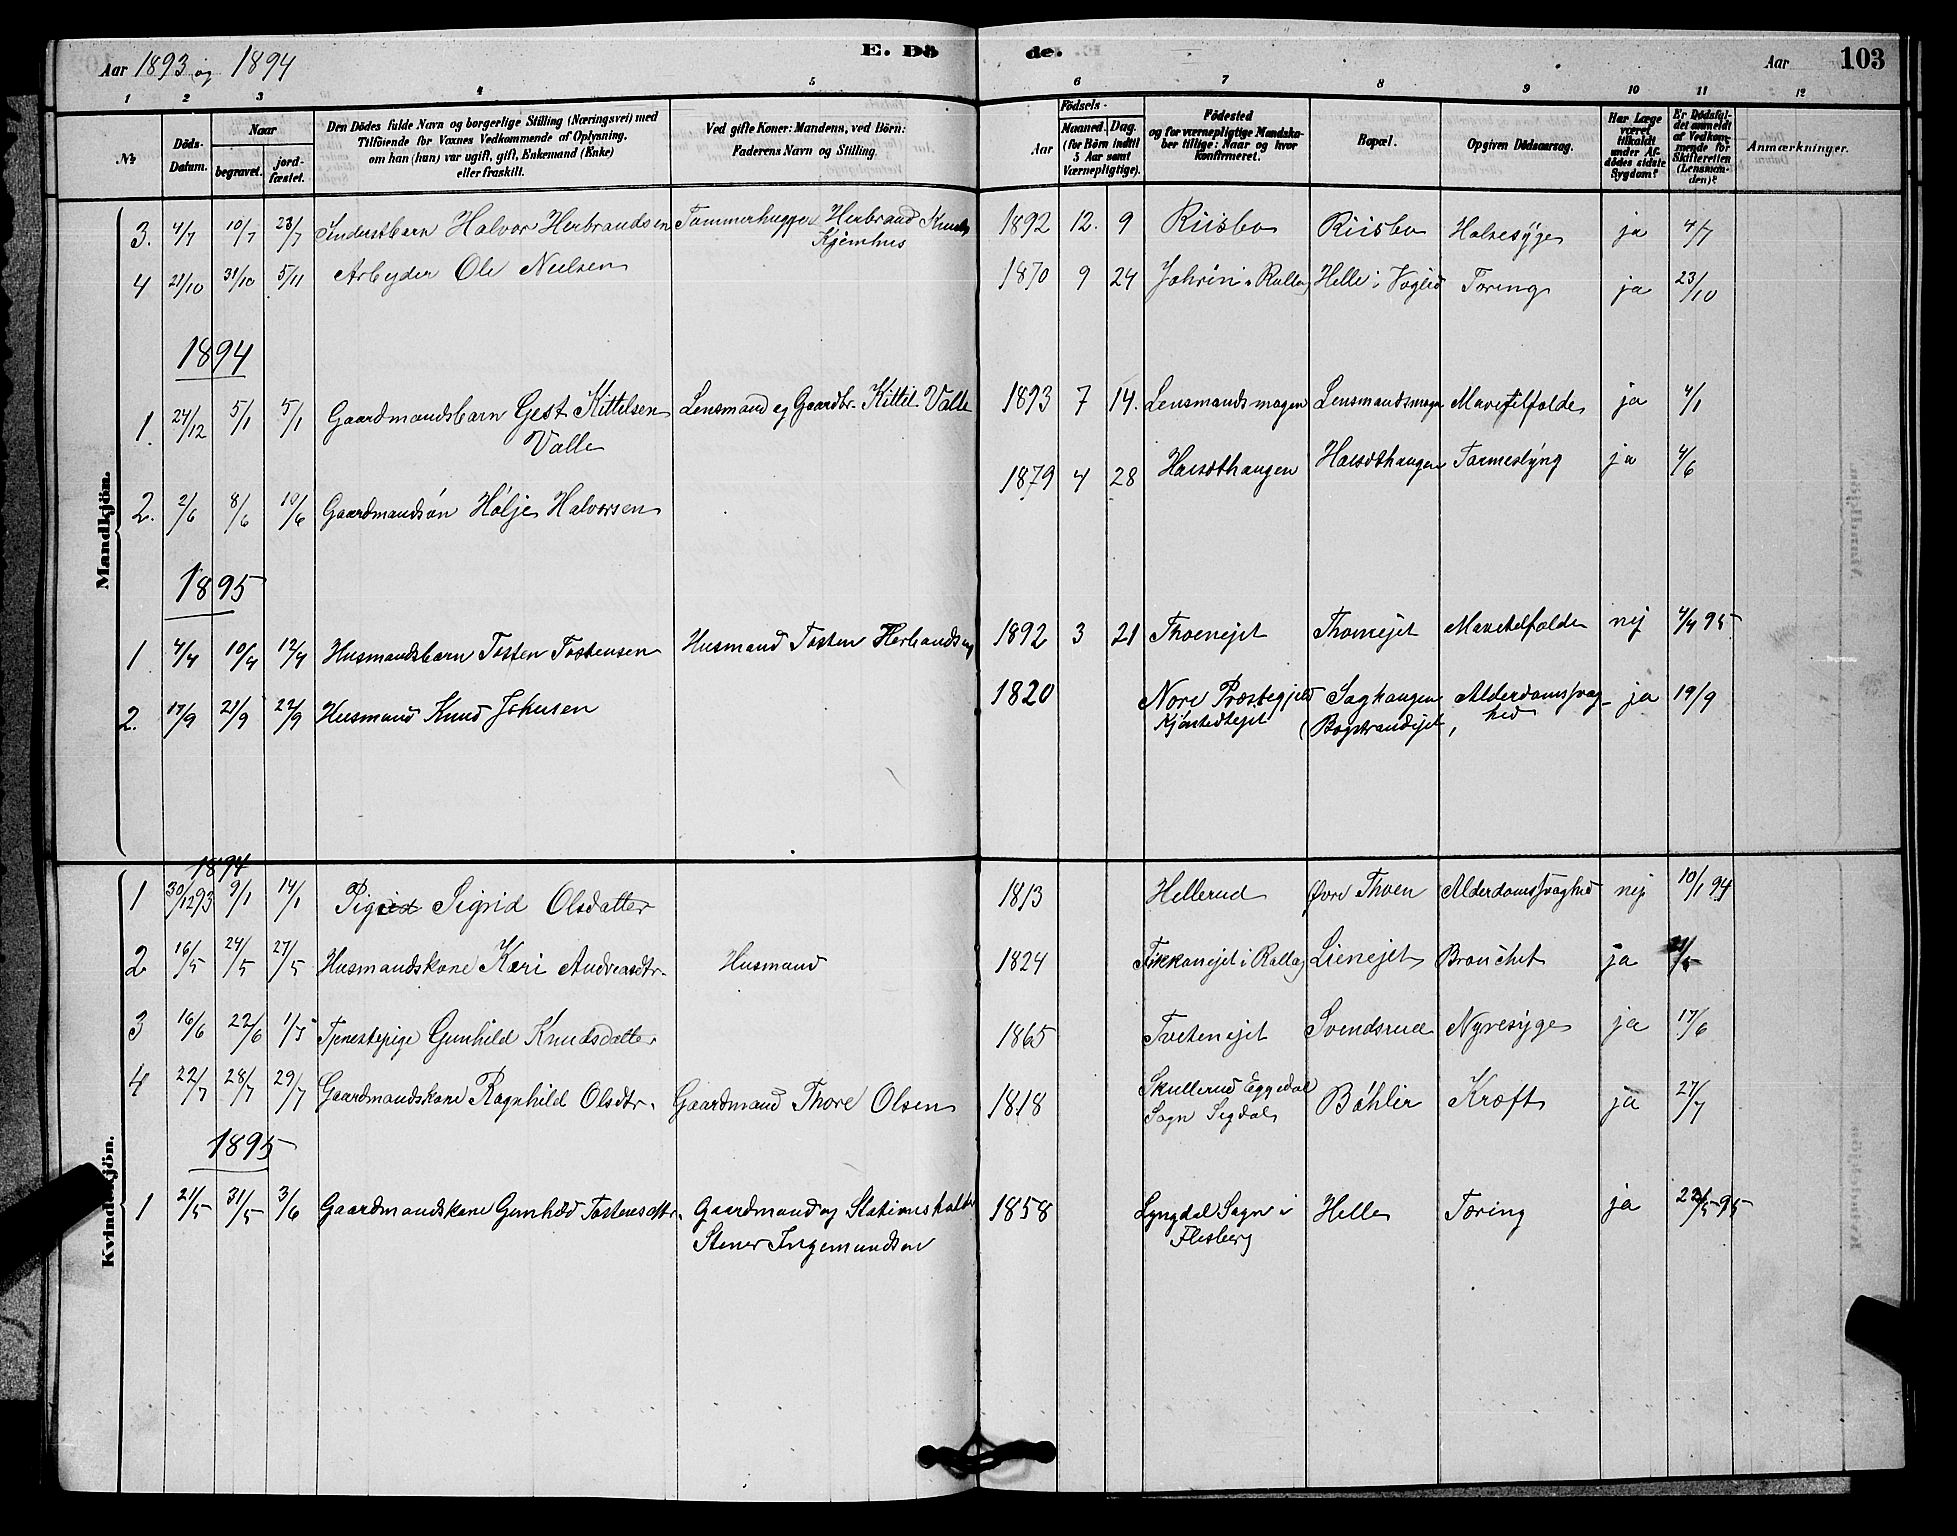 Aar 1893 og 1894
E. Dö de.
Aar 103
1 2 3 4 5 6 7 8 9 10 11 12
No
Döds-Datum.
Naar
begravet.
jord-fæstet.
Den Dödes fulde Navn og borgerlige Stilling (Næringsvei) med
Tilföiende for Voxnes Vedkommende af Oplysning,
om han (hun) var ugift, gift, Enkemand (Enke)
eller fraskilt.
Ved gifte Koner: Mandens, ved Börn:
Faderens Navn og Stilling.
Födsels-
Aar
Maaned. Dag.
(for Börn indtil
5 Aar samt
Værnepligtige).
Födested
og for værnepligtige Mandska-
ber tillige: Naar og hvor
konfirmeret.
Bopæl.
Opgiven Dödsaarsag.
Har Læge
været
tilkaldt
under Af-
dödes sidste
Sygdom?
Er Dödsfal-
det anmeldt
af Vedkom-
mende for
Skifteretten
(Lensman-
den)?
Anmærkninger.
Mandkjön.
3. 4/7 10/7 23/7 Halvor Herbrandsen Tømmerhugger Herbrand Knuds 1892 12. 9 Riisbo Riisbo Halsesyge ja 4/7
Kjemhus
4 21/10 31/10 5/11 Arbeyder Ole Nielsen 1870 9 24 i Rollag Helle i Tæring ja 23/10
1894
1. 24/12 5/1 5/1 Gaardmandsbarn Gest Kittelsen Lensmand og Gaardbr. Kittil Valle 1893 7 14. Lensmandsmogen Lensmandsmogen ja 4/1
Valle
2. 2/6 8/6 10/6 Gaardmandsøn Hølje Halvorsen 1879 4 28 ja 4/6
1895
1 4/4 10/4 12/4 Husmandsbarn Tosten Tostensen Husmand Tosten Herbrandsen 1892 3 21 Thoenejet Thoenejet nej 4/4 95
2. 17/9 21/9 22/9 Husmand Knud Johnsen 1820 Nore Præstegjeld Saghaugen Alderdomssvag- ja 19/9
hed
Kvindekjön.
1894
1 30/12 93 9/1 14/1 Sigrid Olsdatter 1813 Hellerud Øvre Thoen Alderdomssvaghed nej 10/1 94
2 16/5 24/5 27/5 Husmandskone Kari Andreasdtr. Husmand 1824 i Rollag Lienejet Bronchit ja
3 16/6 22/6 1/7 Tjenestepige Gunhild Knudsdatter 1865 Tvetenejet Svendsrud Nyresyge ja 17/6
4 22/7 28/7 29/7 Gaardmandskone Ragnhild Olsdtr. Gaardmand Thore Olsen 1818 Skullerud Eggedal Bøhler Kræft ja 27/7
Sogn Sigdal
1895
1 21/5 31/5 3/6 Gaardmandskone Gunhild Tostensdtr. Gaardmand og Stationsholder 1858 Lyngdal Sogn i Helle Tæring ja 22/5 95
Stener Ingemundsen Flesberg